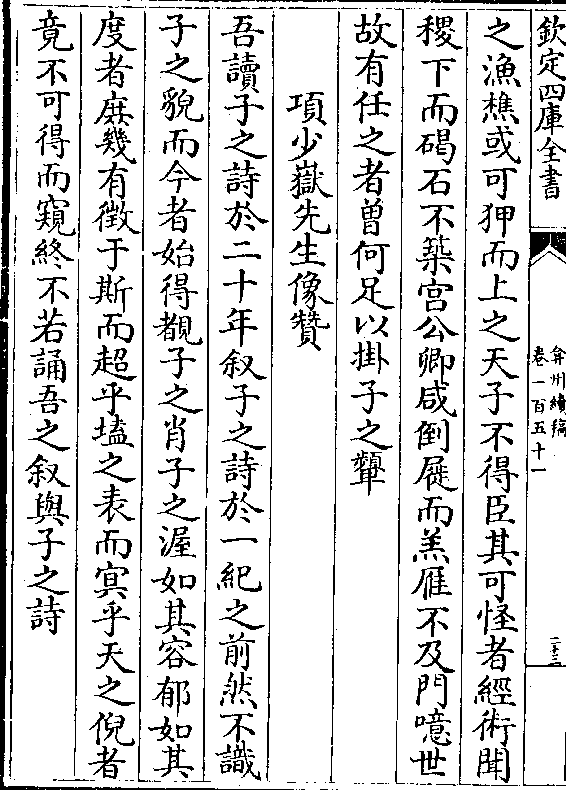 欽定四庫全書
弇州續稿
卷一百五十一
二十三
之漁樵或可狎而上之天子不得臣其可怪者經術聞
稷下而碣石不築宫公卿咸倒屣而羔雁不及門噫世
故有任之者曾何足以掛子之顰
項少嶽先生像贊
吾讀子之詩於二十年叙子之詩於一紀之前然不識
子之貌而今者始得覩子之肖子之渥如其容郁如其
度者庶幾有徵于斯而超乎壒之表而㝠乎天之倪者
竟不可得而窺終不若誦吾之叙與子之詩